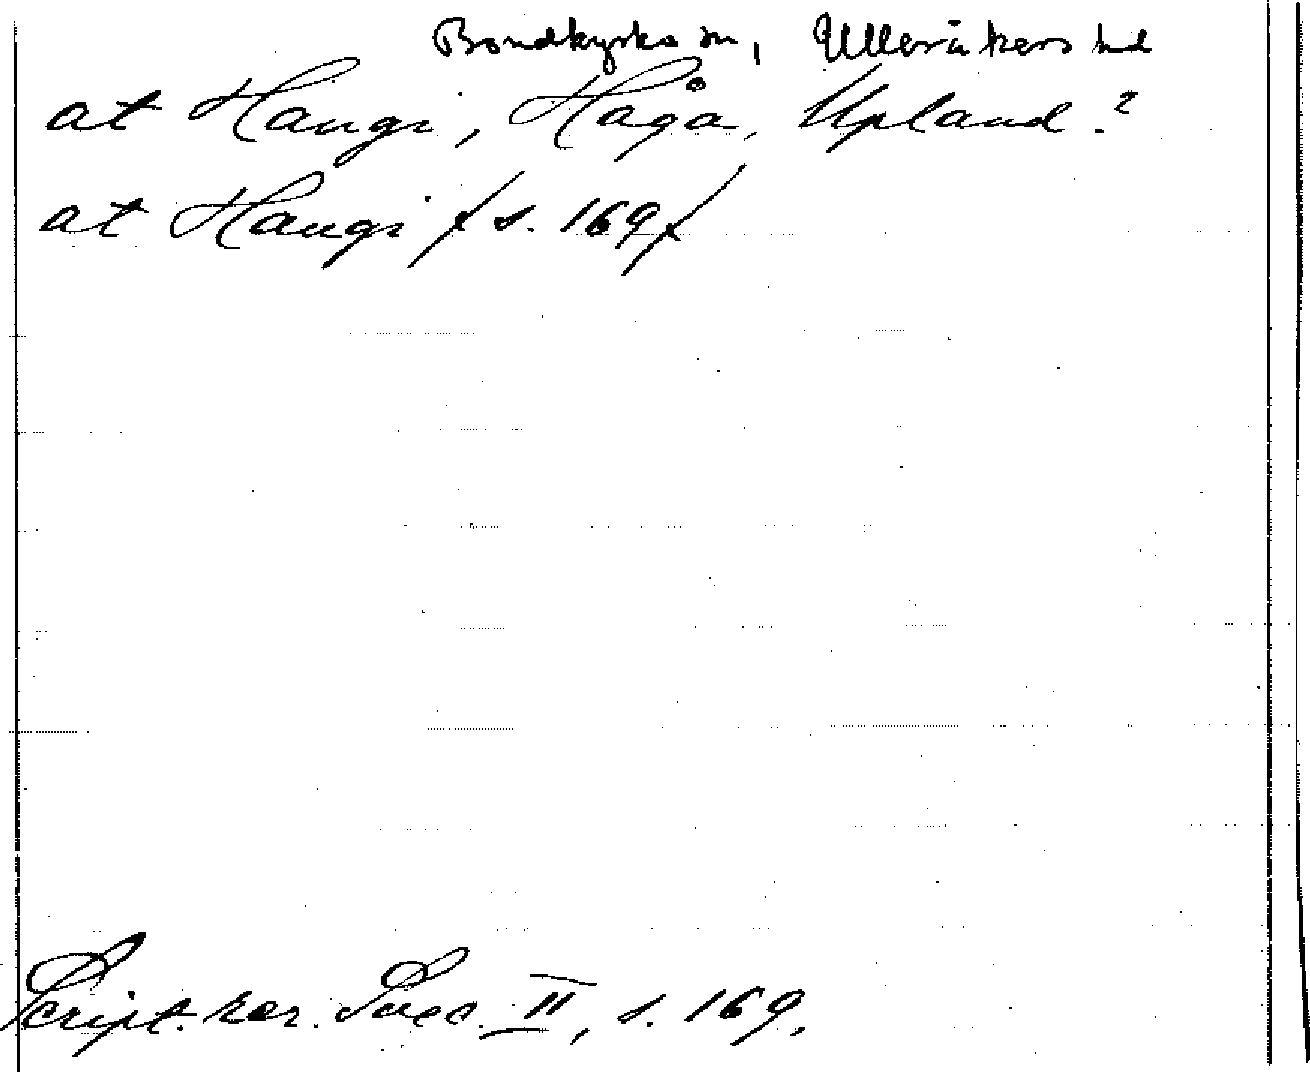 Bondkyrko sn, Ulleråkers hd
at Haugi, Håga, Upland.?
at Haugi /s. 169/
Script. rer. Svec. II, s. 169.